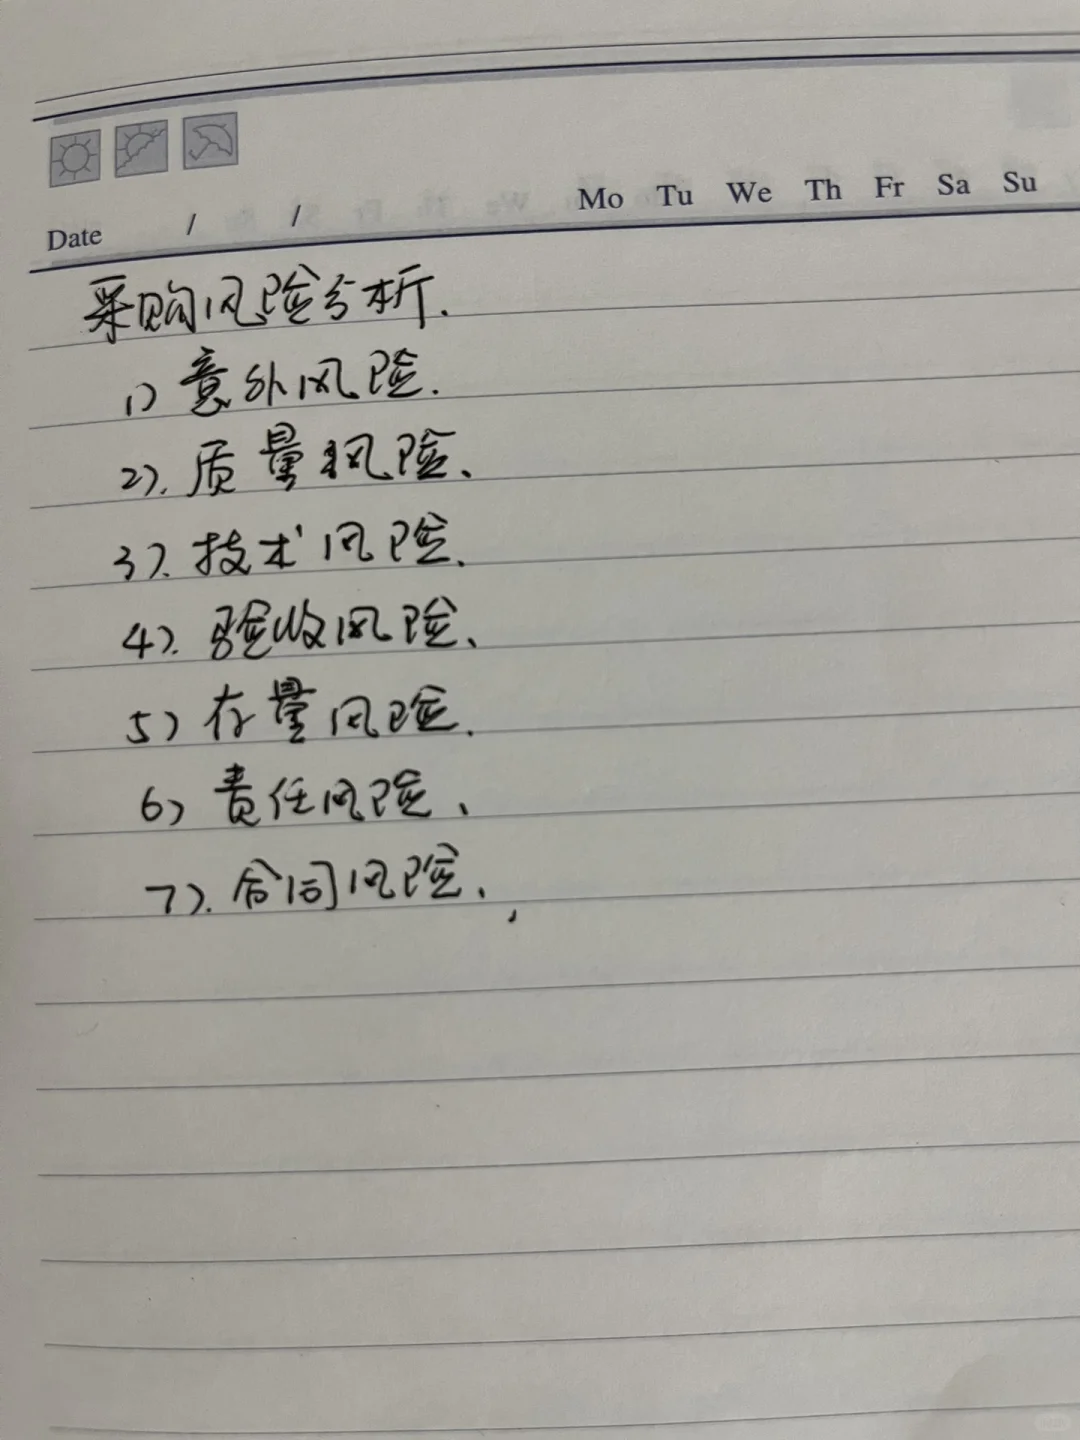 Mo Tu We Th Fr Sa Su
Date / /
采购风险分析.
1) 意外风险.
2). 质量风险、
3). 技术风险.
4). 验收风险、
5) 存量风险.
6) 责任风险、
7). 合同风险、